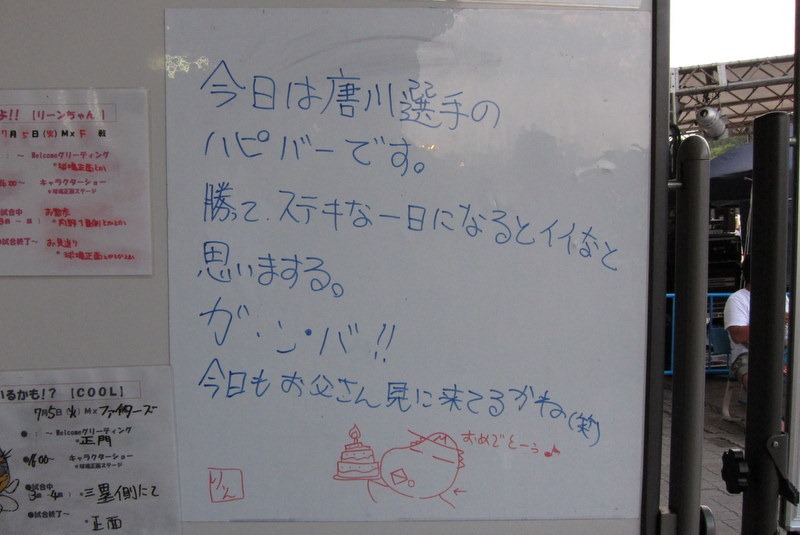 今日は唐川選手の
ハピバーです。
勝って、ステキな一日になるとイイなと
思いまする。
ガ・ン・バ!!
今日もお父さん見に来てるかね(笑)
おめでとーう♪
りん
よ!! 【リーンちゃん】
7月5日(火) M×F 戦
: ～ Welcomeグリーティング
*球場正面
16:00～ キャラクターショー
*球場正面ステージ
試合中
試合終了～ お見送り
*球場正面
いるかも!? 【COOL】
7月5日(火) M×ファイターズ
: ～ Welcomeグリーティング
*正門
16:00～ キャラクターショー
*球場正面ステージ
●試合中
3回～4回 : *三塁側にて
●試合終了～
*正面